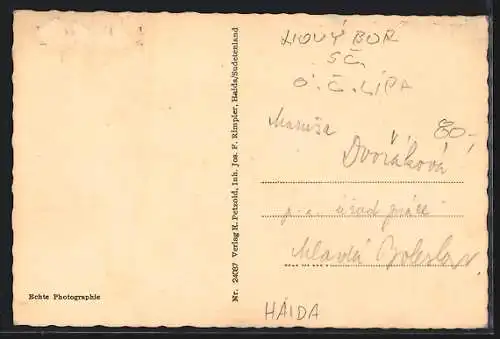 Echte Photographie
Nr. 24097 Verlag K. Petzold, Inh. Jos. F. Rimpler, Haida/Sudetenland
NOVÝ BOR
SČ.
O. Č. LÍPA
80,-
Maruša
Dvořáková
p. a. úřad práce
Mladá Boleslav.
HAIDA